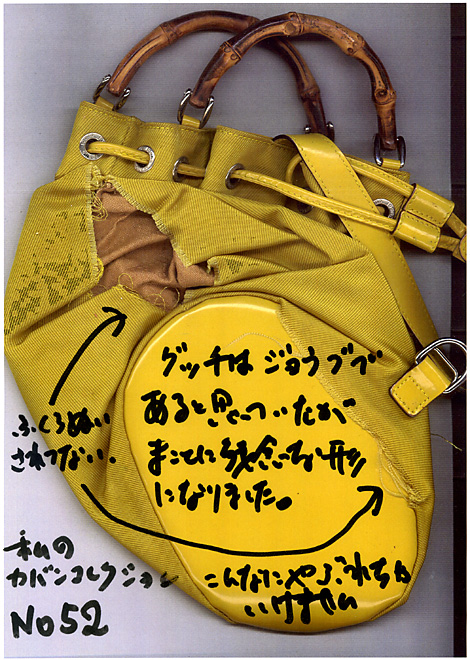 グッチは ジョウブで
あると思っていたが
まことに残念な形
になりました。
ふくろぬい
されてない.
私の
カバンコレクション
No52
こんなにやぶれちゃ
いけません